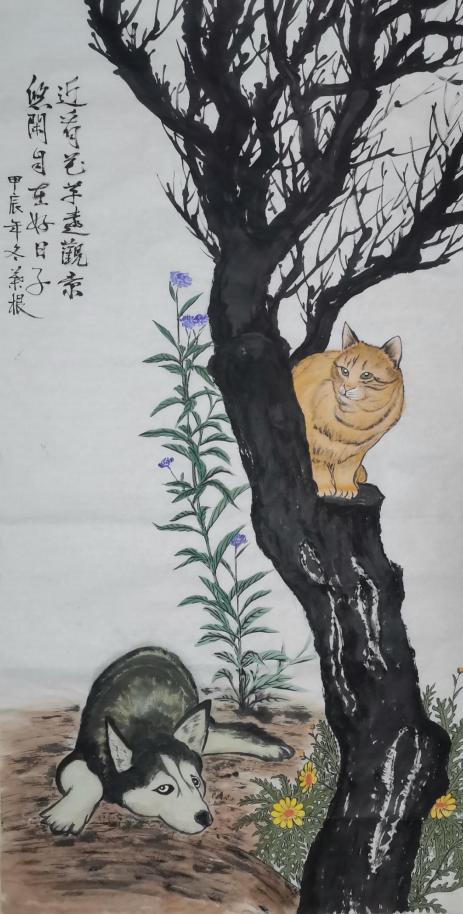 近看花草遠觀景
悠閑自在好日子
甲辰年冬美根